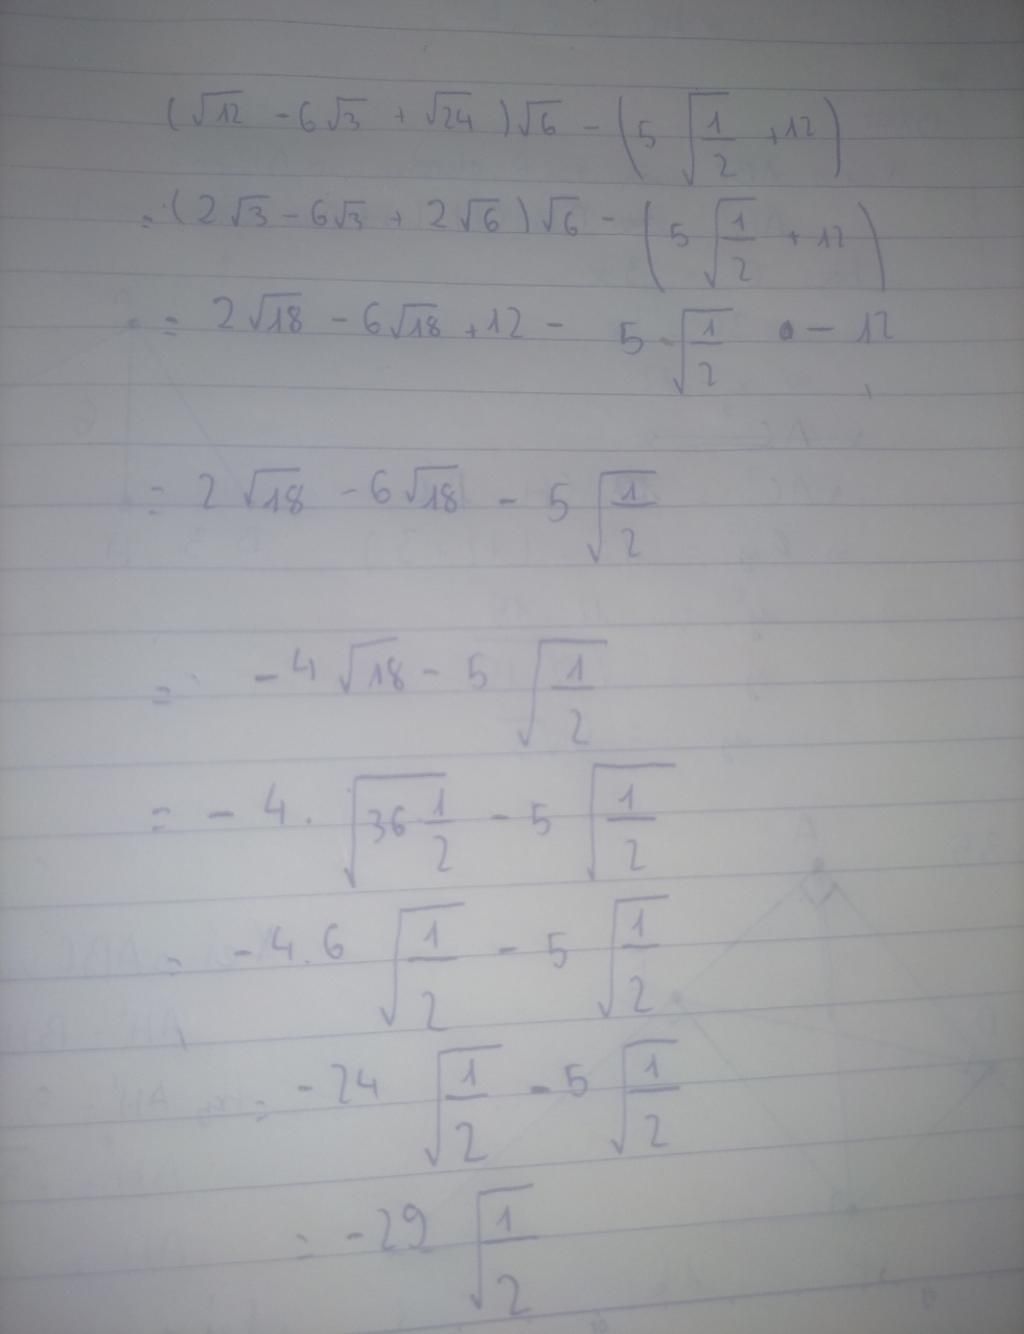 (√12 - 6√3 + √24)√6 - (5√(1/2) + 12)
= (2√3 - 6√3 + 2√6)√6 - (5√(1/2) + 12)
= 2√18 - 6√18 + 12 - 5√(1/2) - 12
= 2√18 - 6√18 - 5√(1/2)
= -4√18 - 5√(1/2)
= -4.√(36 1/2) - 5√(1/2)
= -4.6√(1/2) - 5√(1/2)
= -24√(1/2) - 5√(1/2)
= -29√(1/2)